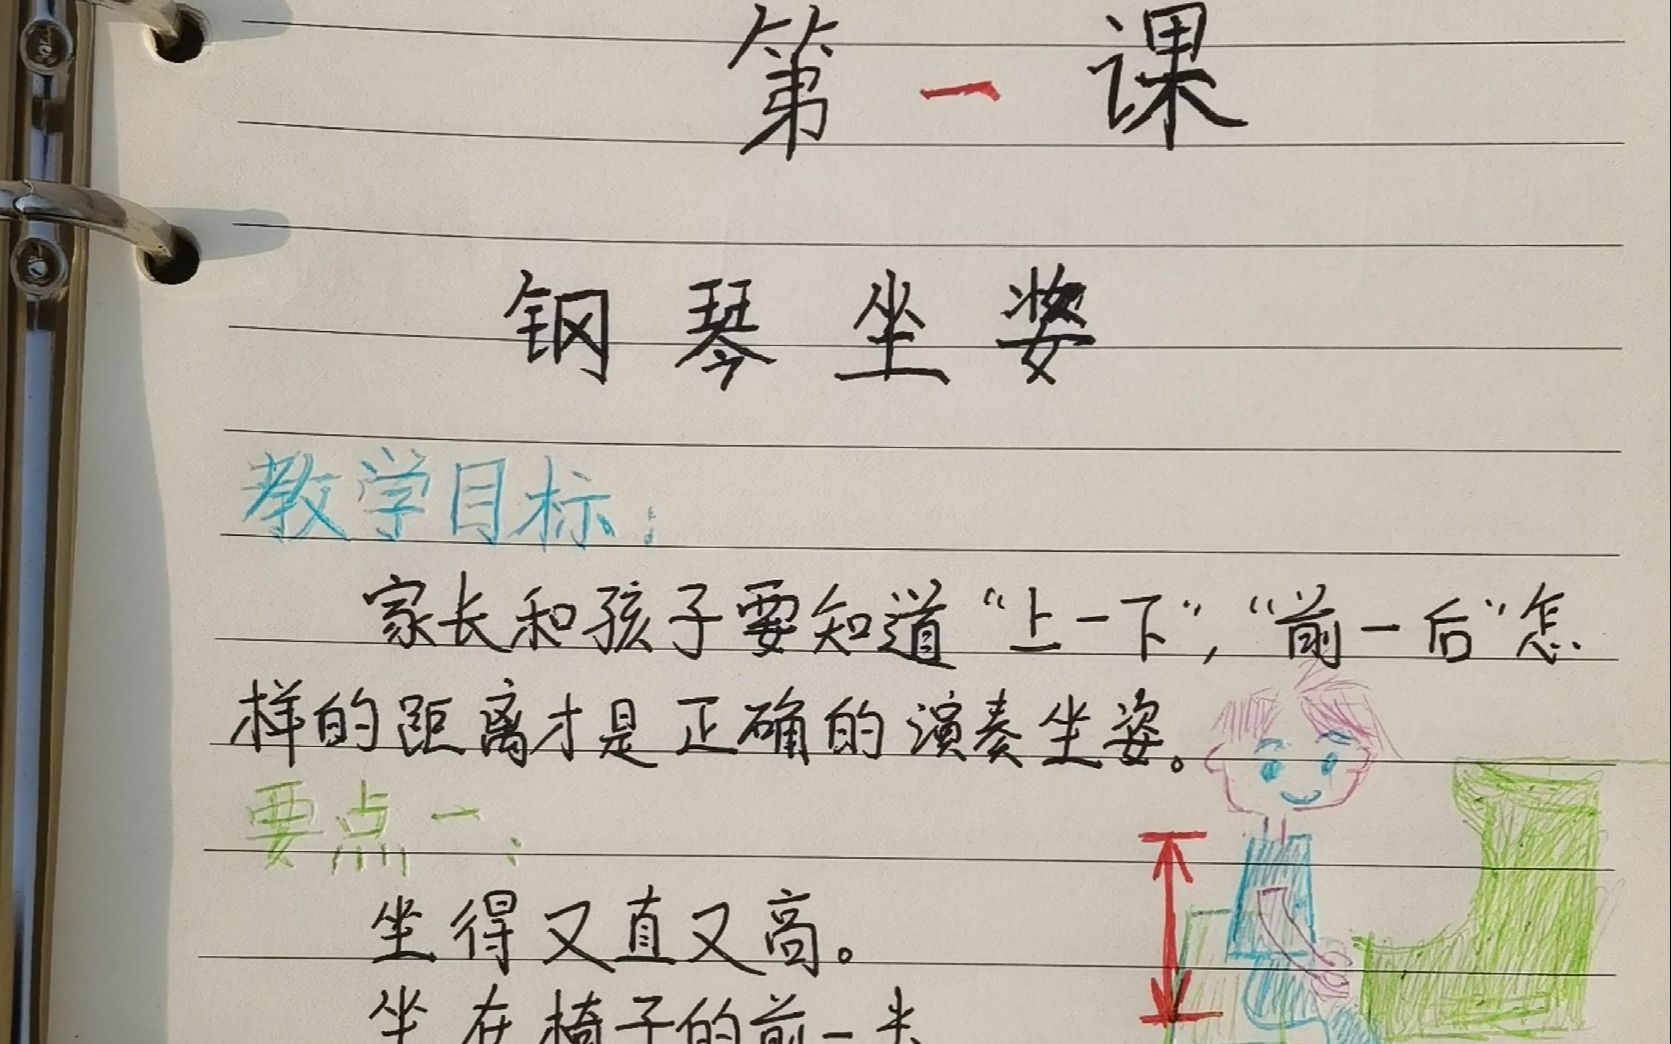 第一课
钢琴坐姿
教学目标：
家长和孩子要知道“上一下”，“前一后”怎
样的距离才是正确的演奏坐姿。
要点一：
坐得又直又高。
坐在椅子的前一半